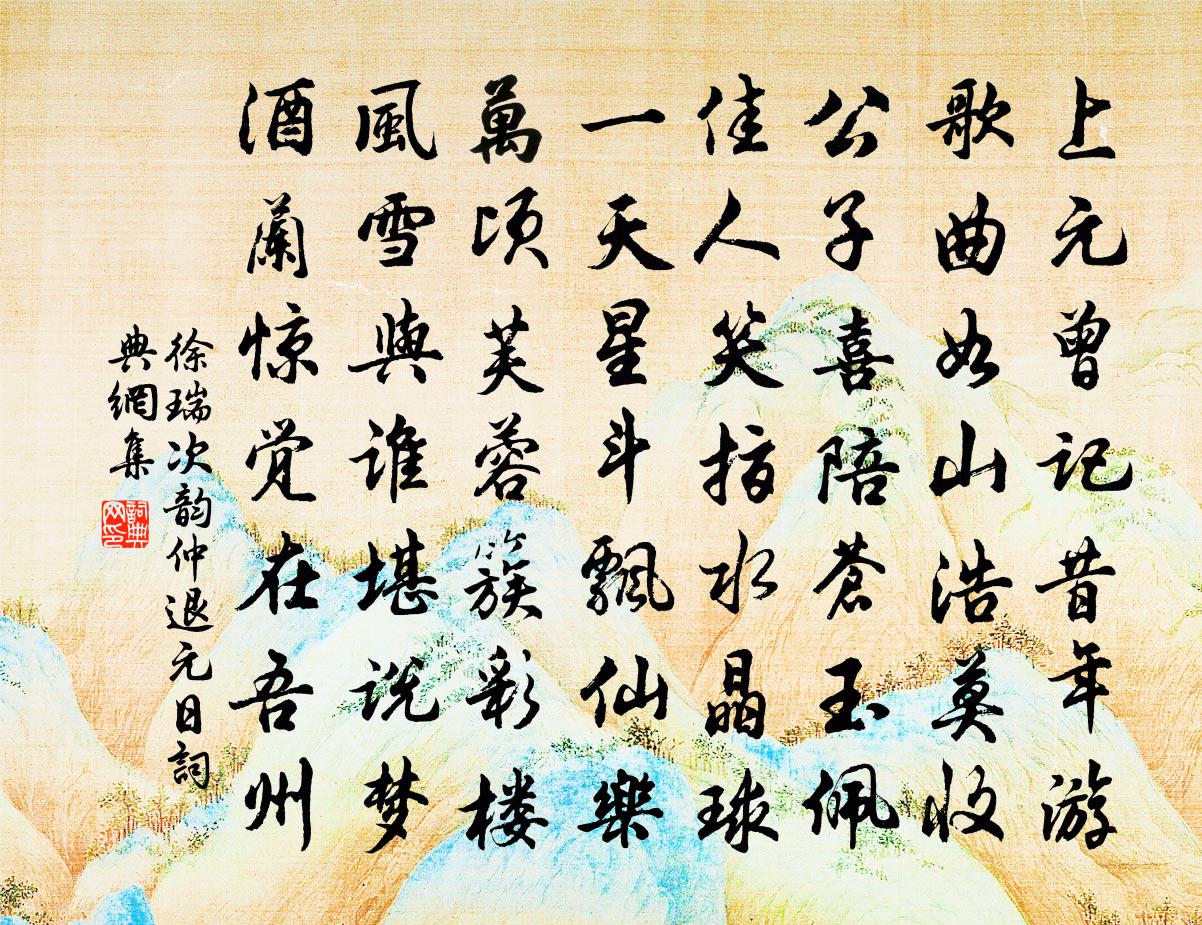 上元曾记昔年游
歌曲如山浩莫收
公子喜陪蒼玉佩
佳人笑指水晶球
一天星斗飄仙樂
萬頃芙蓉簇彩楼
風雪與谁堪说梦
酒蘭惊觉在吾州
徐瑞次韵仲退元日詞
典網集
詞典网印